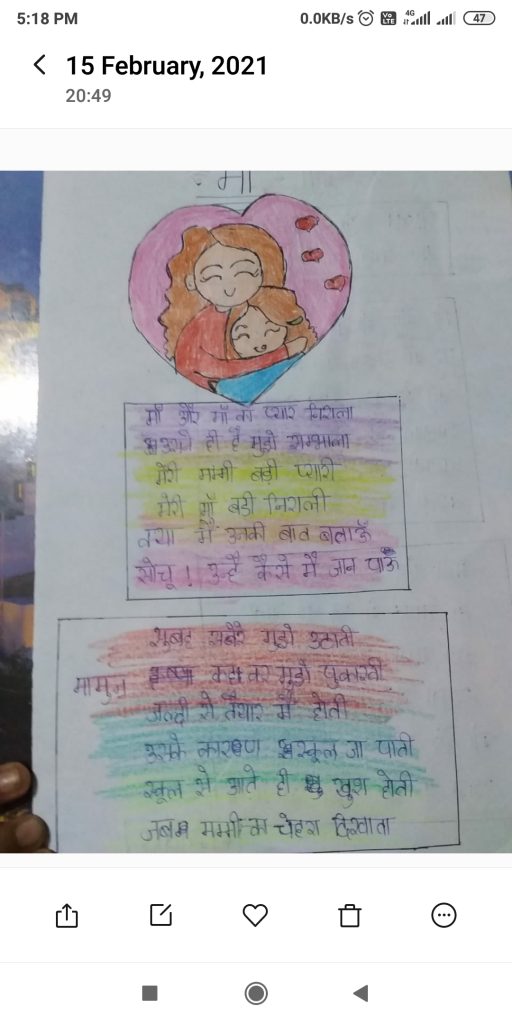 5:18 PM 0.0KB/s Vo LTE 4G 47
15 February, 2021
20:49
माँ
माँ और माँ का प्यार निराला
उसने ही है मुझे सम्भाला
मेरी मम्मी बड़ी प्यारी
मेरी माँ बड़ी निराली
क्या मैं उनकी बात बताऊँ
सोचू ! उन्हें कैसे मैं जान पाऊँ
सुबह सबेरे मुझे उठाती
कहा कर मुझे पुकारती
जल्दी से तैयार मैं होती
उसके कारण स्कूल जा पाती
स्कूल से आते ही खुश होती
जब मम्मी का चेहरा दिखाता